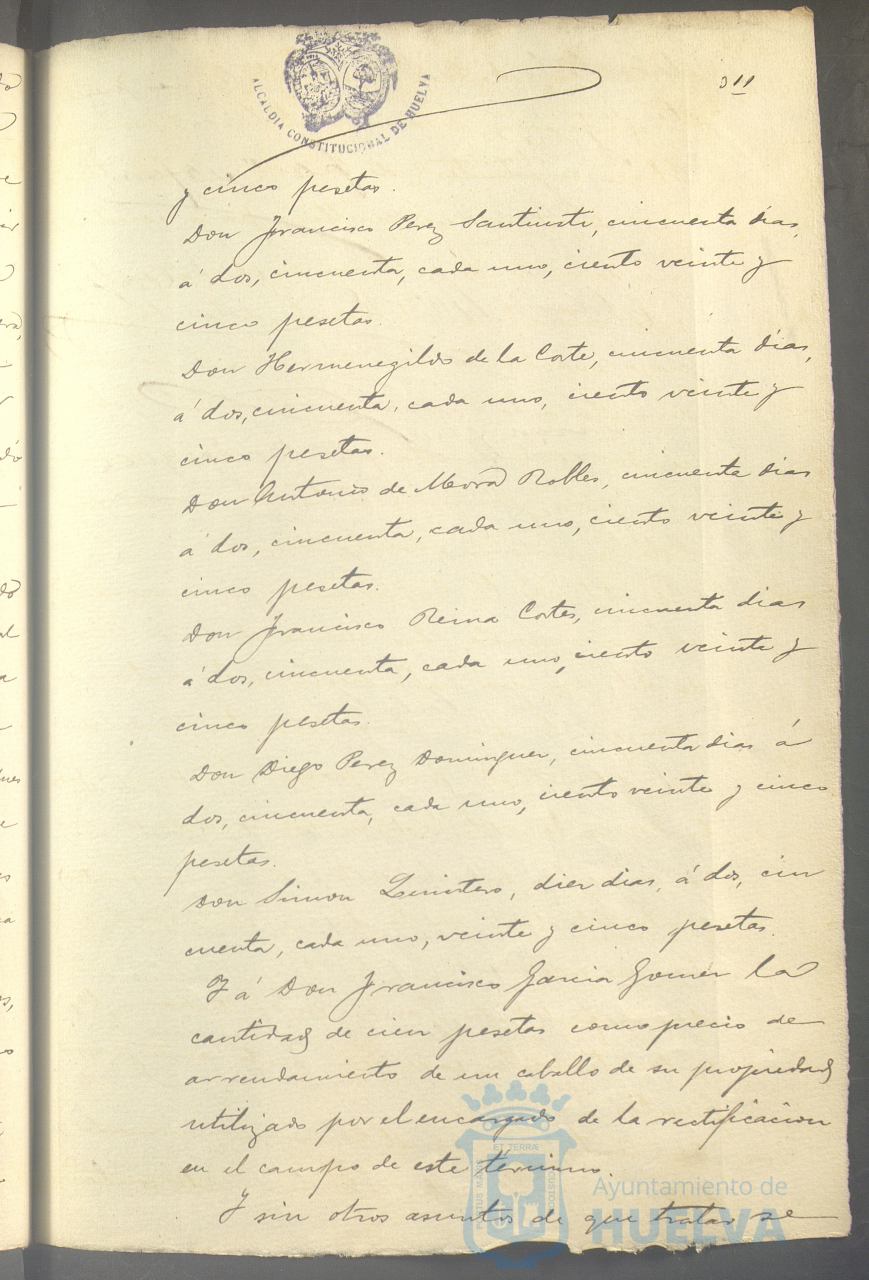 ALCALDIA CONSTITUCIONAL DE HUELVA
311
y cinco pesetas.
Don Francisco Perez Santiuste, cincuenta días,
á dos, cincuenta, cada uno, ciento veinte y
cinco pesetas.
Don Hermenegildo de la Corte, cincuenta días,
á dos, cincuenta, cada uno, ciento veinte y
cinco pesetas.
Don Antonio de Mora Robles, cincuenta dias
á dos, cincuenta, cada uno, ciento veinte y
cinco pesetas.
Don Francisco Reina Cortes, cincuenta dias
á dos, cincuenta, cada uno, ciento veinte y
cinco pesetas.
Don Diego Perez Dominguez, cincuenta dias á
dos, cincuenta, cada uno, ciento veinte y cinco
pesetas.
Don Simon Quintero, diez dias, á dos, cin
cuenta, cada uno, veinte y cinco pesetas.
Y á Don Francisco Garcia Gomez la
cantidad de cien pesetas como precio de
arrendamiento de un caballo de su propiedad
utilizado por el encargado de la rectificacion
en el campo de este término.
Y sin otros asuntos de que tratar se
PORTUS MARIS ET TERRÆ CUSTODIA
Ayuntamiento de
HUELVA